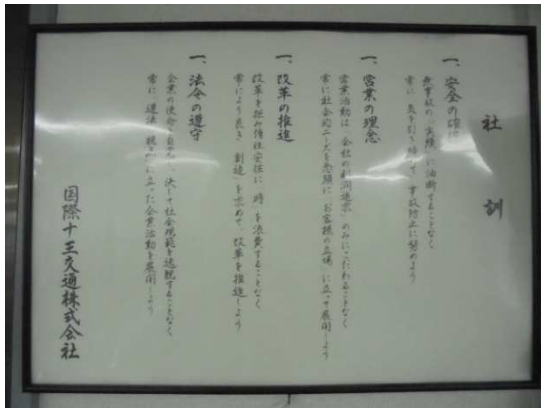 社訓
一、安全の確保
無事故の「実績」に油断することなく
常に、気を引き締めて、事故防止に努めよう
一、営業の理念
営業活動は「会社の利潤追求」のみにこだわることなく
常に社会的ニーズを念頭に「お客様の立場」に立って展開しよう
一、改革の推進
改革を拒み惰性安住に「時」を浪費することなく
常により良き「創造」を求めて、改革を推進しよう
一、法令の遵守
企業の使命を自覚し、決して社会規範を逸脱することなく
常に「遵法」精神に立った企業活動を展開しよう
国際十三交通株式会社